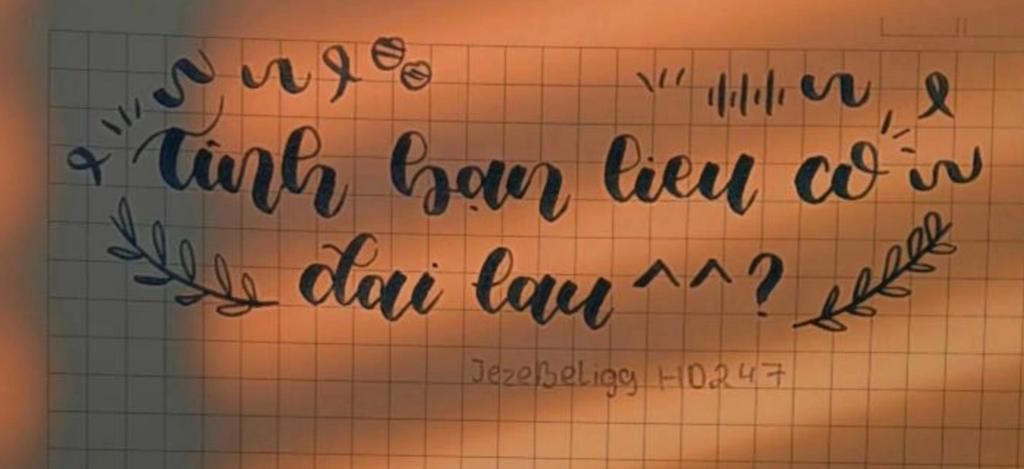 Tình bạn lieu co
dai lau ^^?
JezeBeligg HD247